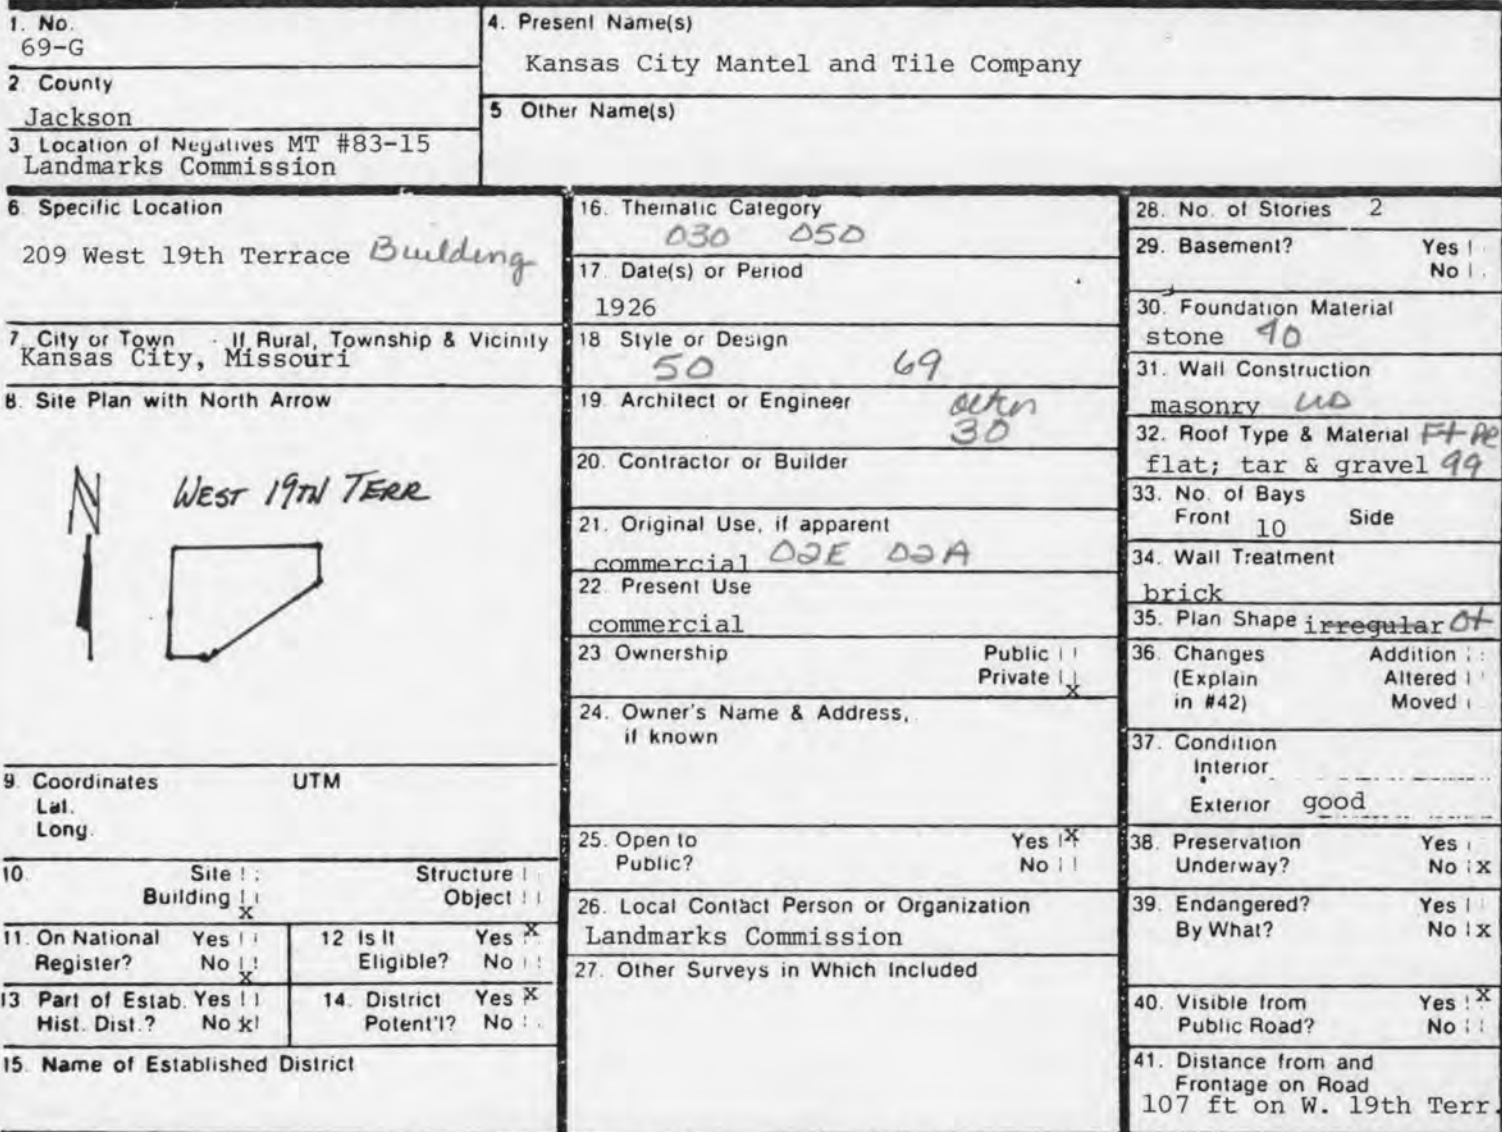 1. No.
69-G
2. County
Jackson
3. Location of Negatives MT #83-15
Landmarks Commission
4. Present Name(s)
Kansas City Mantel and Tile Company
5. Other Name(s)
6. Specific Location
209 West 19th Terrace Building
7. City or Town If Rural, Township & Vicinity
Kansas City, Missouri
8. Site Plan with North Arrow
N
WEST 19TH TERR
9. Coordinates UTM
Lat.
Long.
10. Site Structure
Building X Object
11. On National Yes
Register? No X
12 Is It Yes X
Eligible? No
13 Part of Estab. Yes
Hist. Dist.? No X
14. District Yes X
Potent'l? No
15. Name of Established District
16. Thematic Category
030 050
17. Date(s) or Period
1926
18 Style or Design
50 69
19. Architect or Engineer
30
20. Contractor or Builder
21. Original Use, if apparent
commercial 02E 02A
22 Present Use
commercial
23 Ownership Public
Private X
24. Owner's Name & Address,
if known
25. Open to Yes X
Public? No
26. Local Contact Person or Organization
Landmarks Commission
27. Other Surveys in Which Included
28. No. of Stories 2
29. Basement? Yes
No
30. Foundation Material
stone 40
31. Wall Construction
masonry
32. Roof Type & Material
flat; tar & gravel 99
33. No. of Bays
Front 10 Side
34. Wall Treatment
brick
35. Plan Shape irregular Ot
36. Changes Addition
(Explain Altered
in #42) Moved
37. Condition
Interior
Exterior good
38. Preservation Yes
Underway? No X
39. Endangered? Yes
By What? No X
40. Visible from Yes X
Public Road? No
41. Distance from and
Frontage on Road
107 ft on W. 19th Terr.